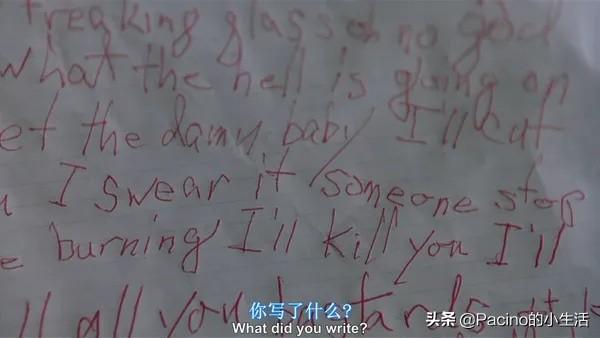 freaking glass oh no god
what the hell is going on
et the damn baby I'll cut
u I swear it someone stop
e burning I'll kill you I'll
ll all you bastards
你写了什么?
What did you write?
头条 @Pacino的小生活